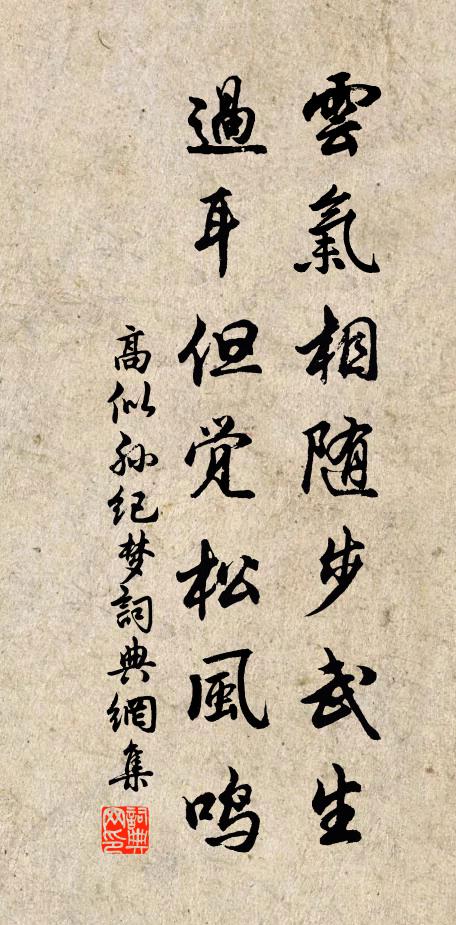 雲氣相随步武生
過耳但覺松風鳴
高似孙纪梦詞典網集
詞典网印